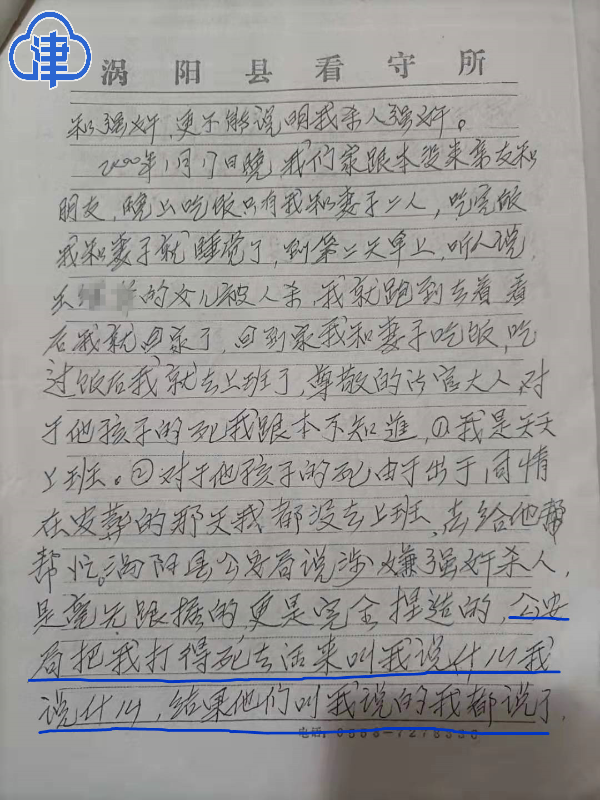 津
涡阳县看守所
和强奸,更不能说明我杀人强奸。
2000年1月17日晚,我们家跟本没来亲友和
朋友,晚上吃饭只有我和妻子二人,吃完饭
我和妻子就睡觉了,到第二天早上,听人说,
的女儿被人杀,我就跑到去看,看
后我就回来了,回到家我和妻子吃饭,吃
过饭后我就去上班了,尊敬的法官大人,对
于他孩子的死我跟本不知道,①我是天天
上班。②对于他孩子的死,由于出于同情
在发葬的那天我都没去上班,去给他帮
帮忙。涡阳县公安局说涉嫌强奸杀人,
是毫无跟据的,更是完全捏造的,公安
局把我打得死去活来叫我说什么我
说什么,结果他们叫我说的我都说了,
电话:0558-7278336